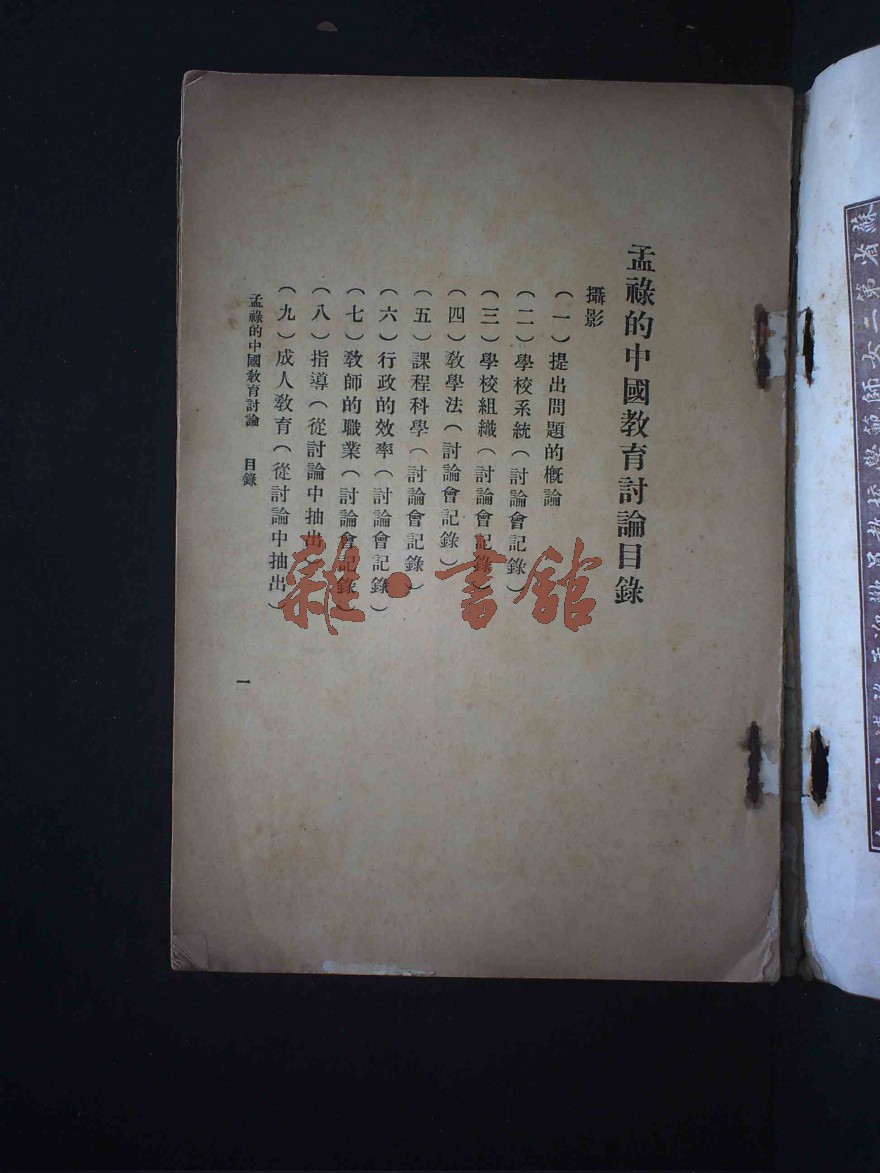 孟祿的中國教育討論目錄
攝影
（一）提出問題的概論
（二）學校系統（討論會記錄）
（三）學校組織（討論會記錄）
（四）教學法（討論會記錄）
（五）課程科學（討論會記錄）
（六）行政的效率（討論會記錄）
（七）教師的職業（討論會記錄）
（八）指導（從討論中抽出）
（九）成人教育（從討論中抽出）
孟祿的中國教育討論 目錄
一
雜·書館
蘇省第二女師範學校教員歡迎孟祿博